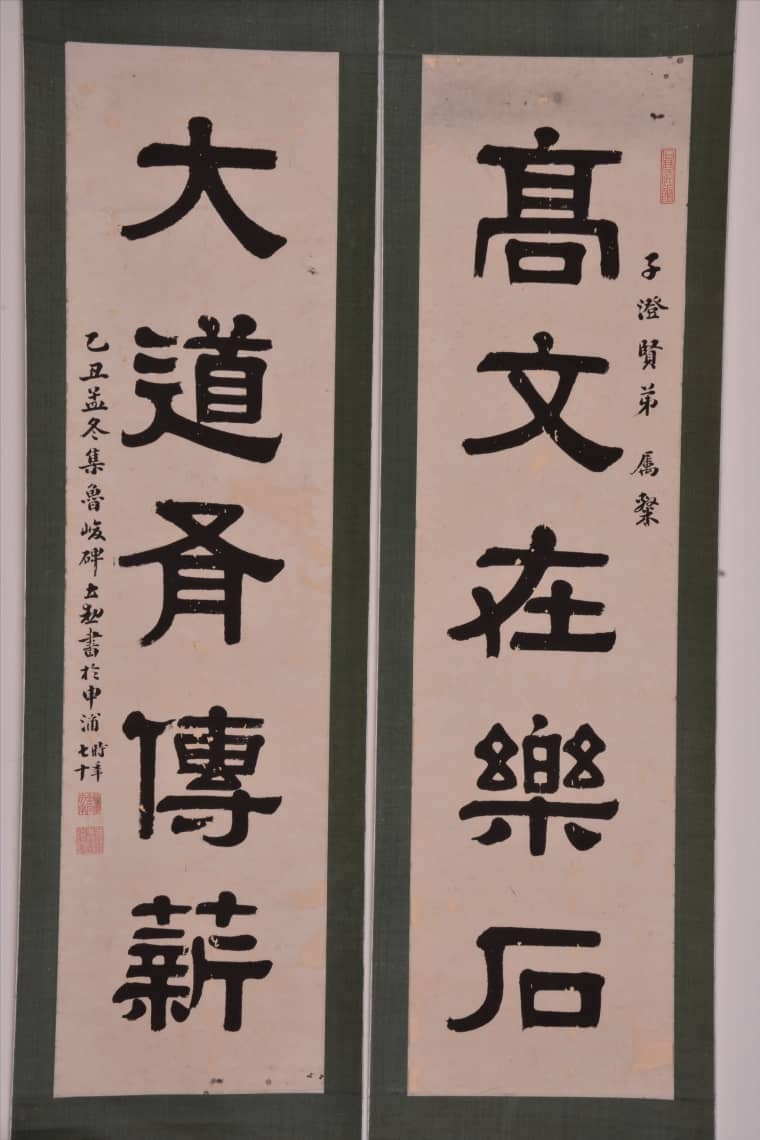 髙文在樂石
子澄賢弟 屬粲
大道有傳薪
乙丑孟冬集魯峻碑立勳書於申浦時年七十